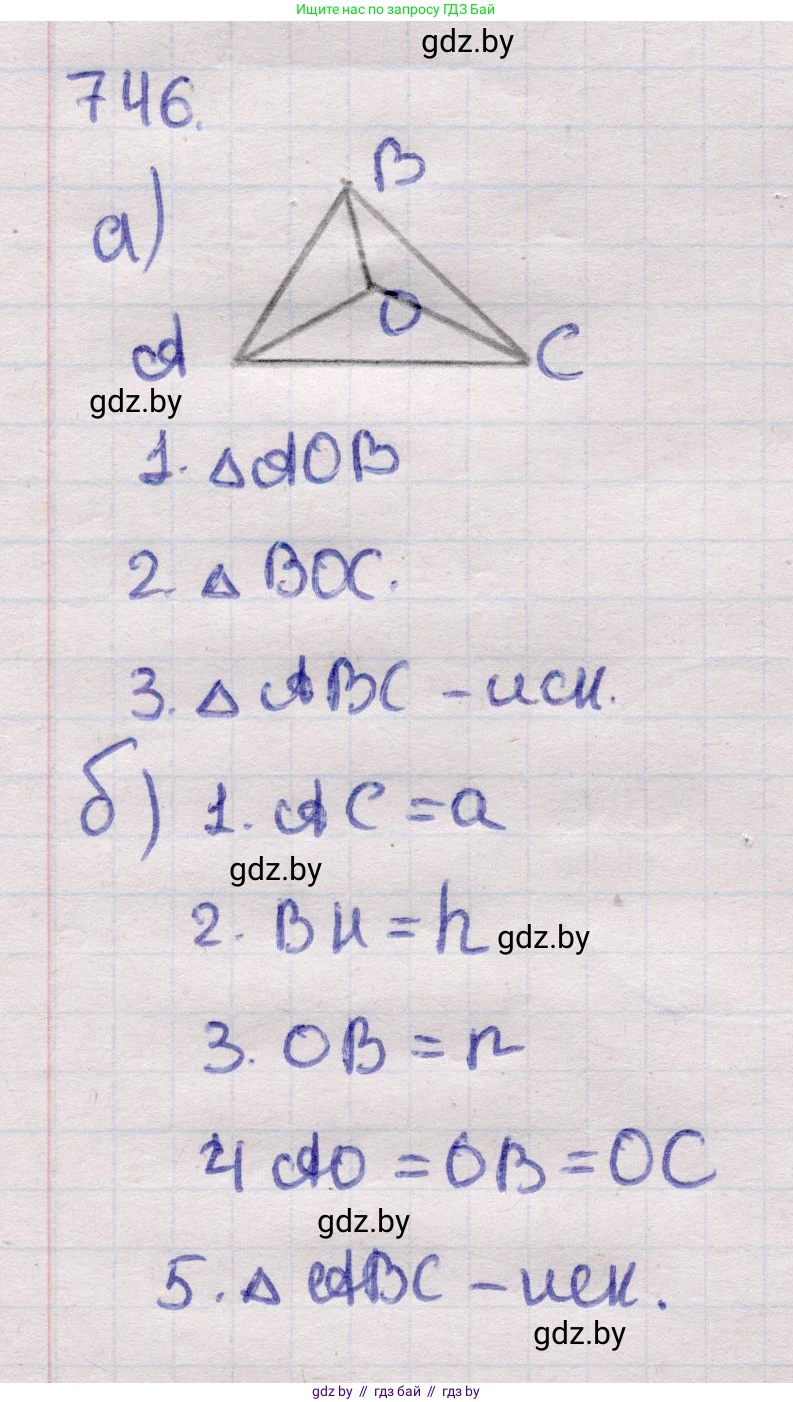 Ищите нас по запросу ГДЗ Бай
gdz.by
746.
а)
B
O
A
C
gdz.by
1. △ AOB
2. △ BOC.
3. △ ABC - иск.
б) 1. AC = a
gdz.by
2. BH = h
gdz.by
3. OB = r
4 AO = OB = OC
gdz.by
5. △ ABC - иск.
gdz.by
gdz.by // гдз бай // гдз by